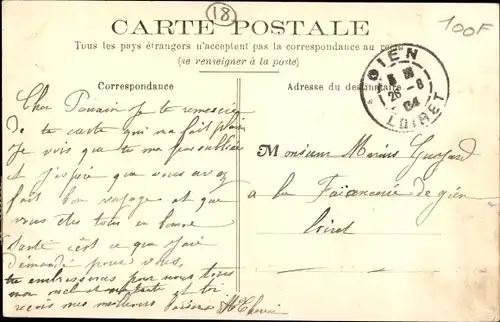 CARTE POSTALE
18
100F
Tous les pays étrangers n'acceptent pas la correspondance au recto
(se renseigner à la poste)
Correspondance
Adresse du destinataire
GIEN
26 - 8
04
LOIRET
Cher Parrain je te remercie
de ta carte qui m'a fait plaisir
Je vois que tu ne m'a pas oubliée
et j'espère que vous avez
fait bon voyage et que
vous êtes tous en bonne
Santé c'est ce que j'ai
demandé pour vous,
tu embrasseras pour nous tous
mon et ma tante et toi
reçois mes meilleurs baisers
Monsieur Marius Guyard
a la Faïencerie de gien
loiret